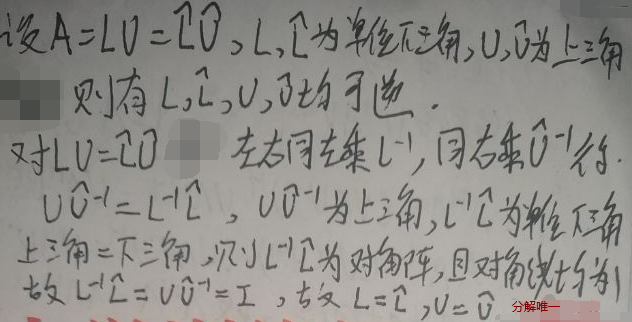 设A=LU=L̂Û,L,L̂为单位下三角,U,Û为上三角
则有L,L̂,U,Û均可逆.
对LU=L̂Û 左右同左乘L⁻¹,同右乘Û⁻¹得.
UÛ⁻¹=L⁻¹L̂,UÛ⁻¹为上三角,L⁻¹L̂为单位下三角
上三角=下三角,则L⁻¹L̂为对角阵,且对角线均为1
故L⁻¹L̂=UÛ⁻¹=I,故L=L̂,U=Û
分解唯一